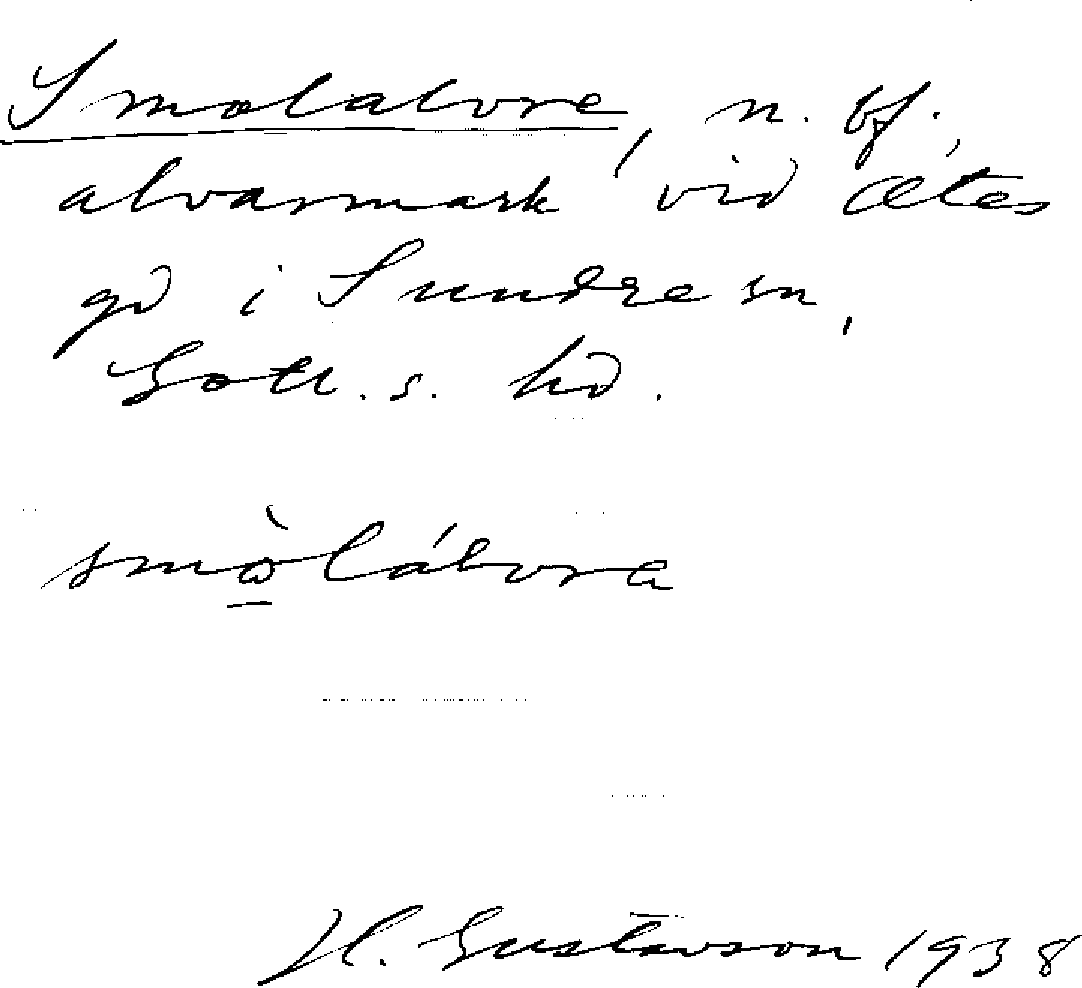 Smolalvre, n. bf.,
alvarmark vid Ætes
gd i Sundre sn,
Gotl. s. hd.
smò̱lálvra
H. Gustavson 1938